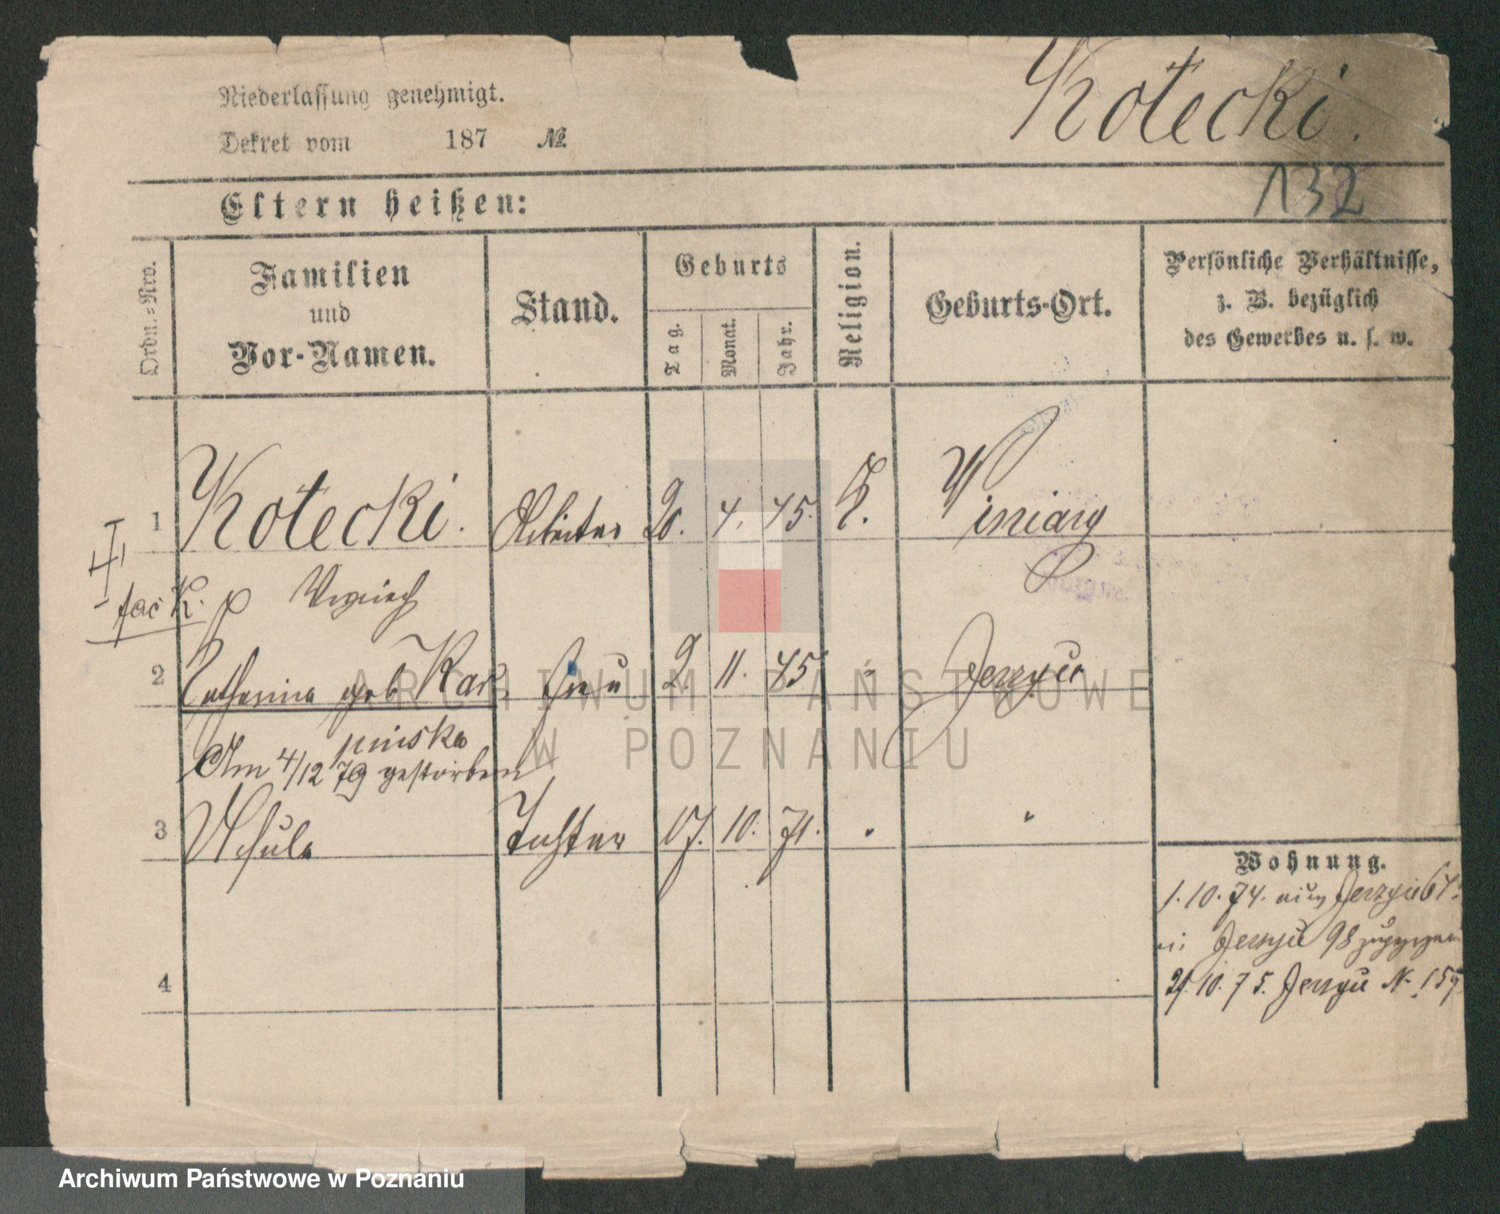 Kotecki.
Niederlassung genehmigt.
Dekret vom 187 №
132
Eltern heißen:
Ordn.-Nro.
Familien
und
Vor-Namen.
Stand.
Geburts
Tag.
Monat.
Jahr.
Religion.
Geburts-Ort.
Persönliche Verhältnisse,
z. B. bezüglich
des Gewerbes u. s. w.
1 Kotecki. Arbeiter 20. 4. 45. K. Winiary
fac K.
2 Catharina geb Kas Frau 2. 11. 45 " Jerzyce
pinska
Am 4/12 79 gestorben
3 Tochter 17. 10. 71. " "
Wohnung.
1. 10. 74. Jerzyce 67.
Jerzyce 98 zugezogen
21. 10. 75. Jerzyce N.
4
ARCHIWUM PAŃSTWOWE
W POZNANIU
Archiwum Państwowe w Poznaniu